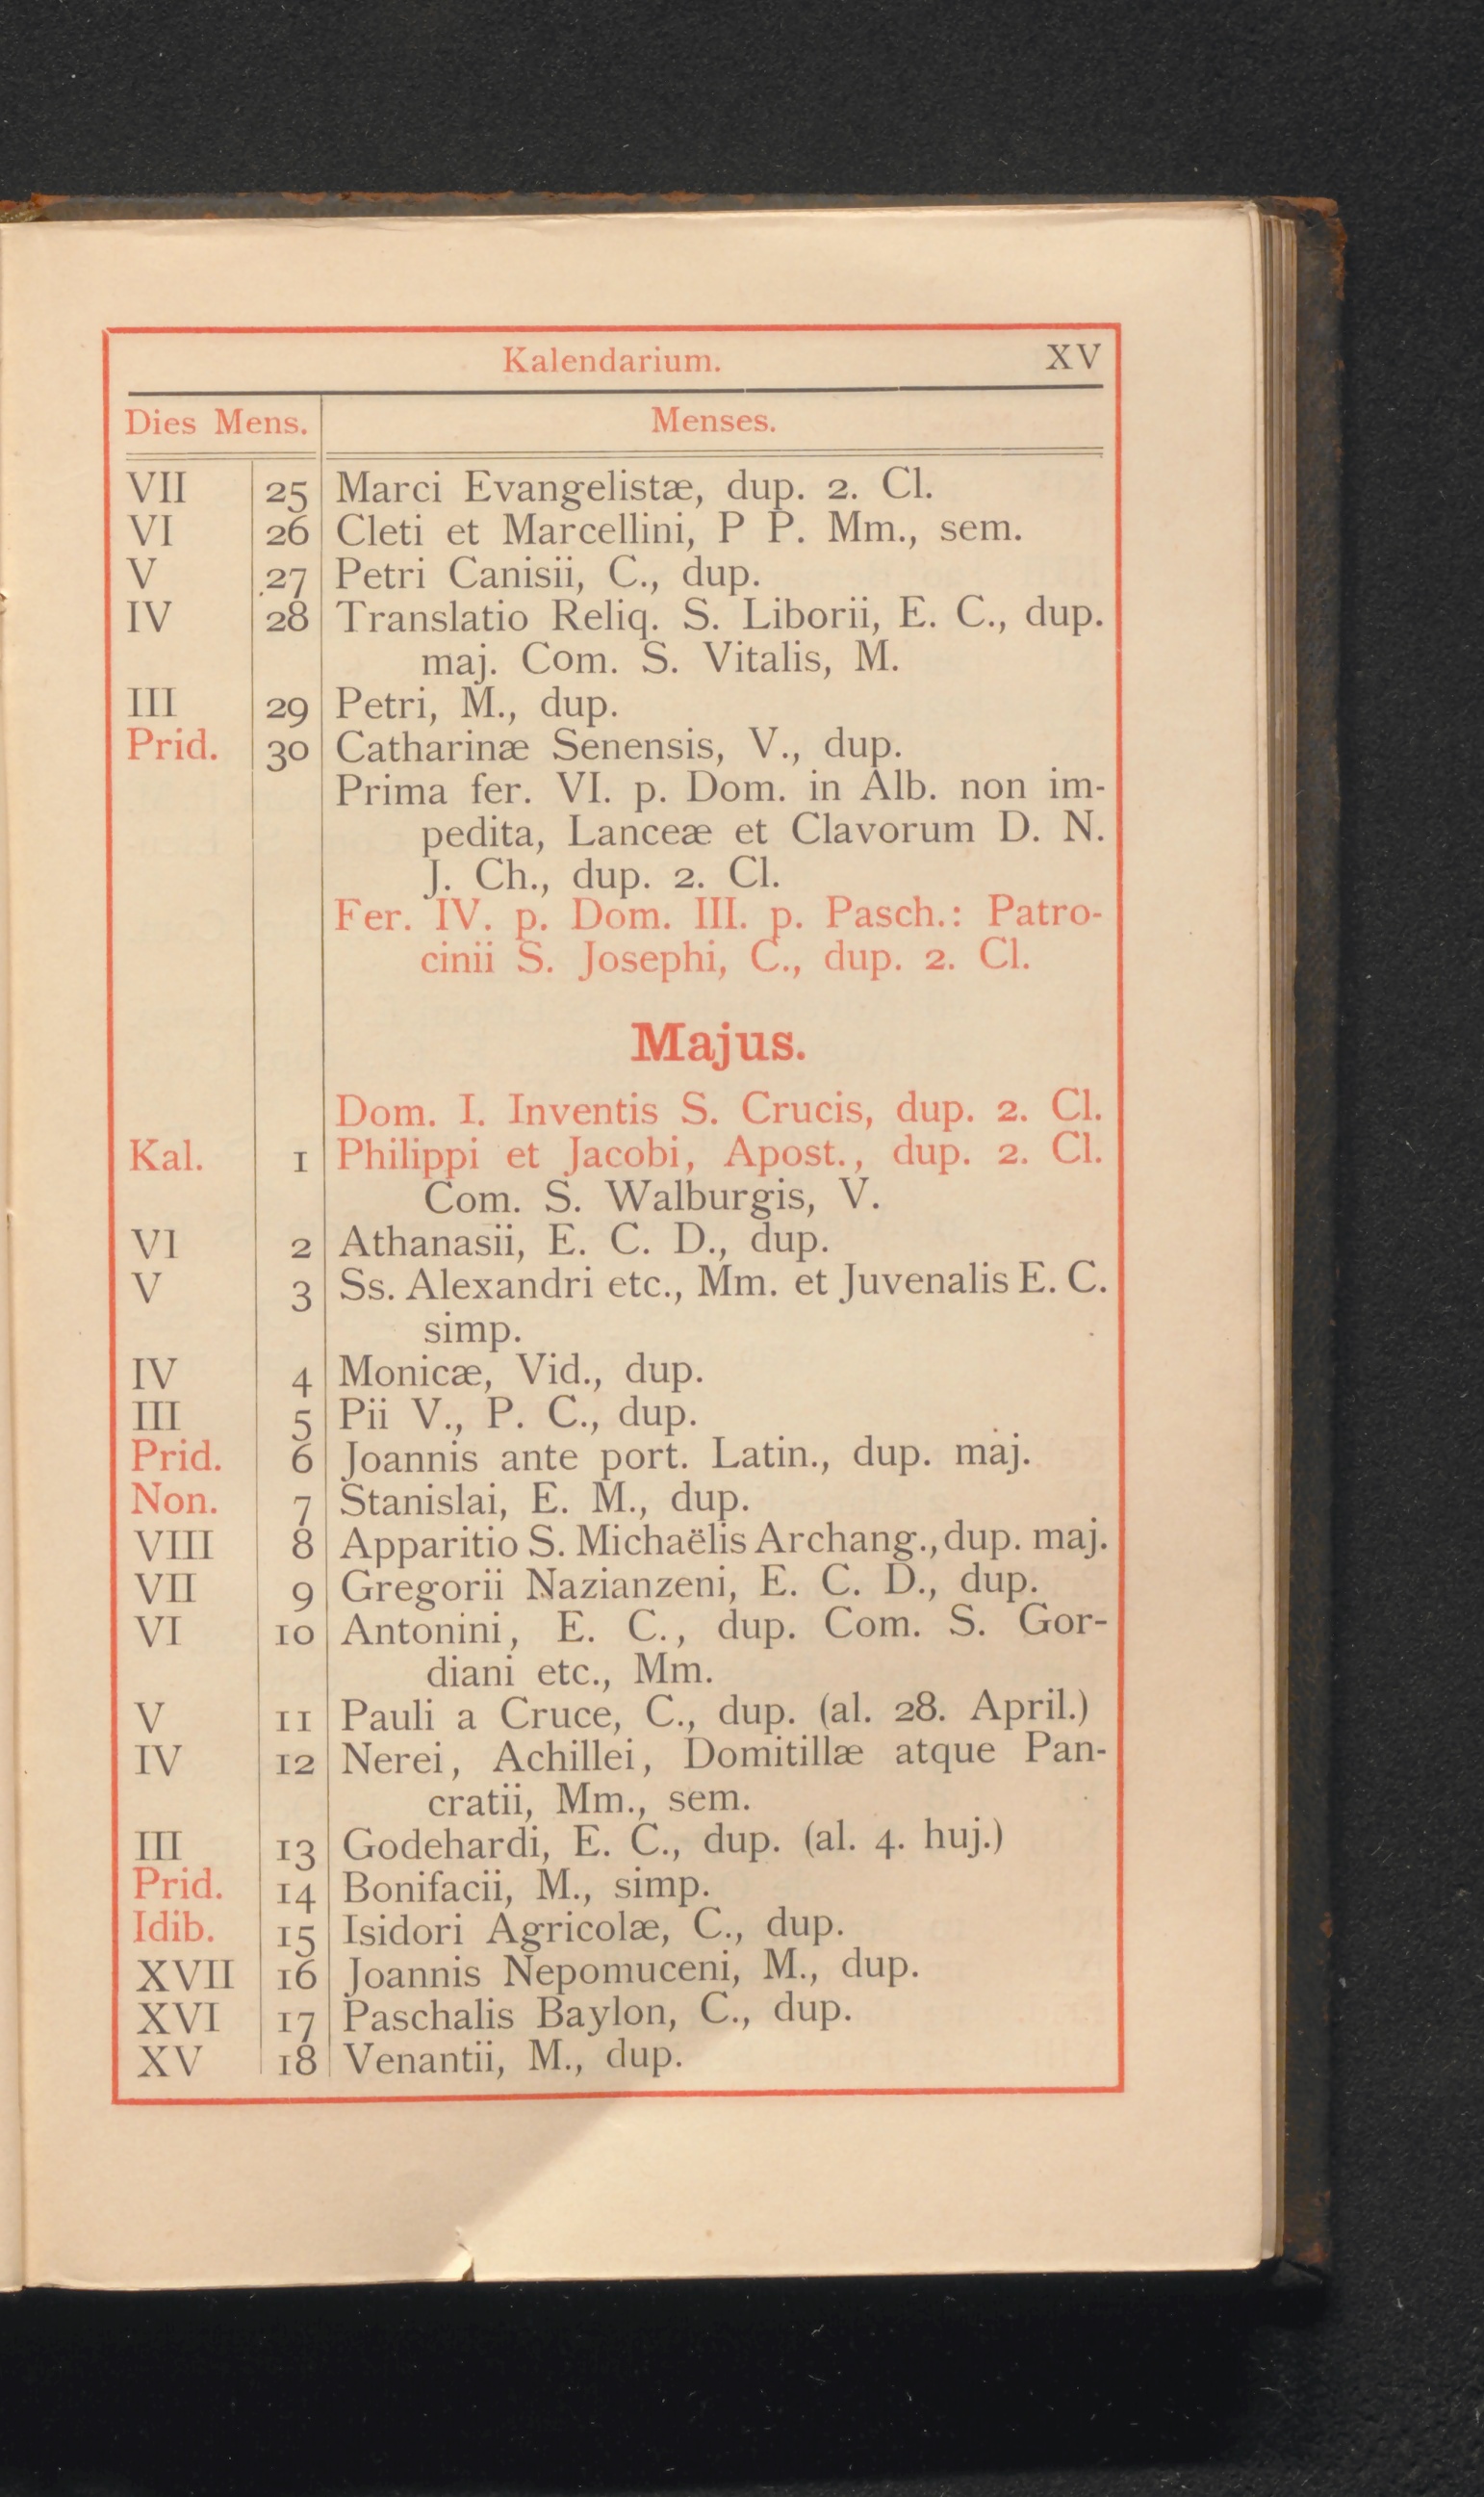 Kalendarium. XV
Dies Mens. Menses.
VII 25 Marci Evangelistæ, dup. 2. Cl.
VI 26 Cleti et Marcellini, P P. Mm., sem.
V 27 Petri Canisii, C., dup.
IV 28 Translatio Reliq. S. Liborii, E. C., dup.
maj. Com. S. Vitalis, M.
III 29 Petri, M., dup.
Prid. 30 Catharinæ Senensis, V., dup.
Prima fer. VI. p. Dom. in Alb. non im-
pedita, Lanceæ et Clavorum D. N.
J. Ch., dup. 2. Cl.
Fer. IV. p. Dom. III. p. Pasch.: Patro-
cinii S. Josephi, C., dup. 2. Cl.
Majus.
Dom. I. Inventis S. Crucis, dup. 2. Cl.
Kal. 1 Philippi et Jacobi, Apost., dup. 2. Cl.
Com. S. Walburgis, V.
VI 2 Athanasii, E. C. D., dup.
V 3 Ss. Alexandri etc., Mm. et Juvenalis E. C.
simp.
IV 4 Monicæ, Vid., dup.
III 5 Pii V., P. C., dup.
Prid. 6 Joannis ante port. Latin., dup. maj.
Non. 7 Stanislai, E. M., dup.
VIII 8 Apparitio S. Michaëlis Archang., dup. maj.
VII 9 Gregorii Nazianzeni, E. C. D., dup.
VI 10 Antonini, E. C., dup. Com. S. Gor-
diani etc., Mm.
V 11 Pauli a Cruce, C., dup. (al. 28. April.)
IV 12 Nerei, Achillei, Domitillæ atque Pan-
cratii, Mm., sem.
III 13 Godehardi, E. C., dup. (al. 4. huj.)
Prid. 14 Bonifacii, M., simp.
Idib. 15 Isidori Agricolæ, C., dup.
XVII 16 Joannis Nepomuceni, M., dup.
XVI 17 Paschalis Baylon, C., dup.
XV 18 Venantii, M., dup.